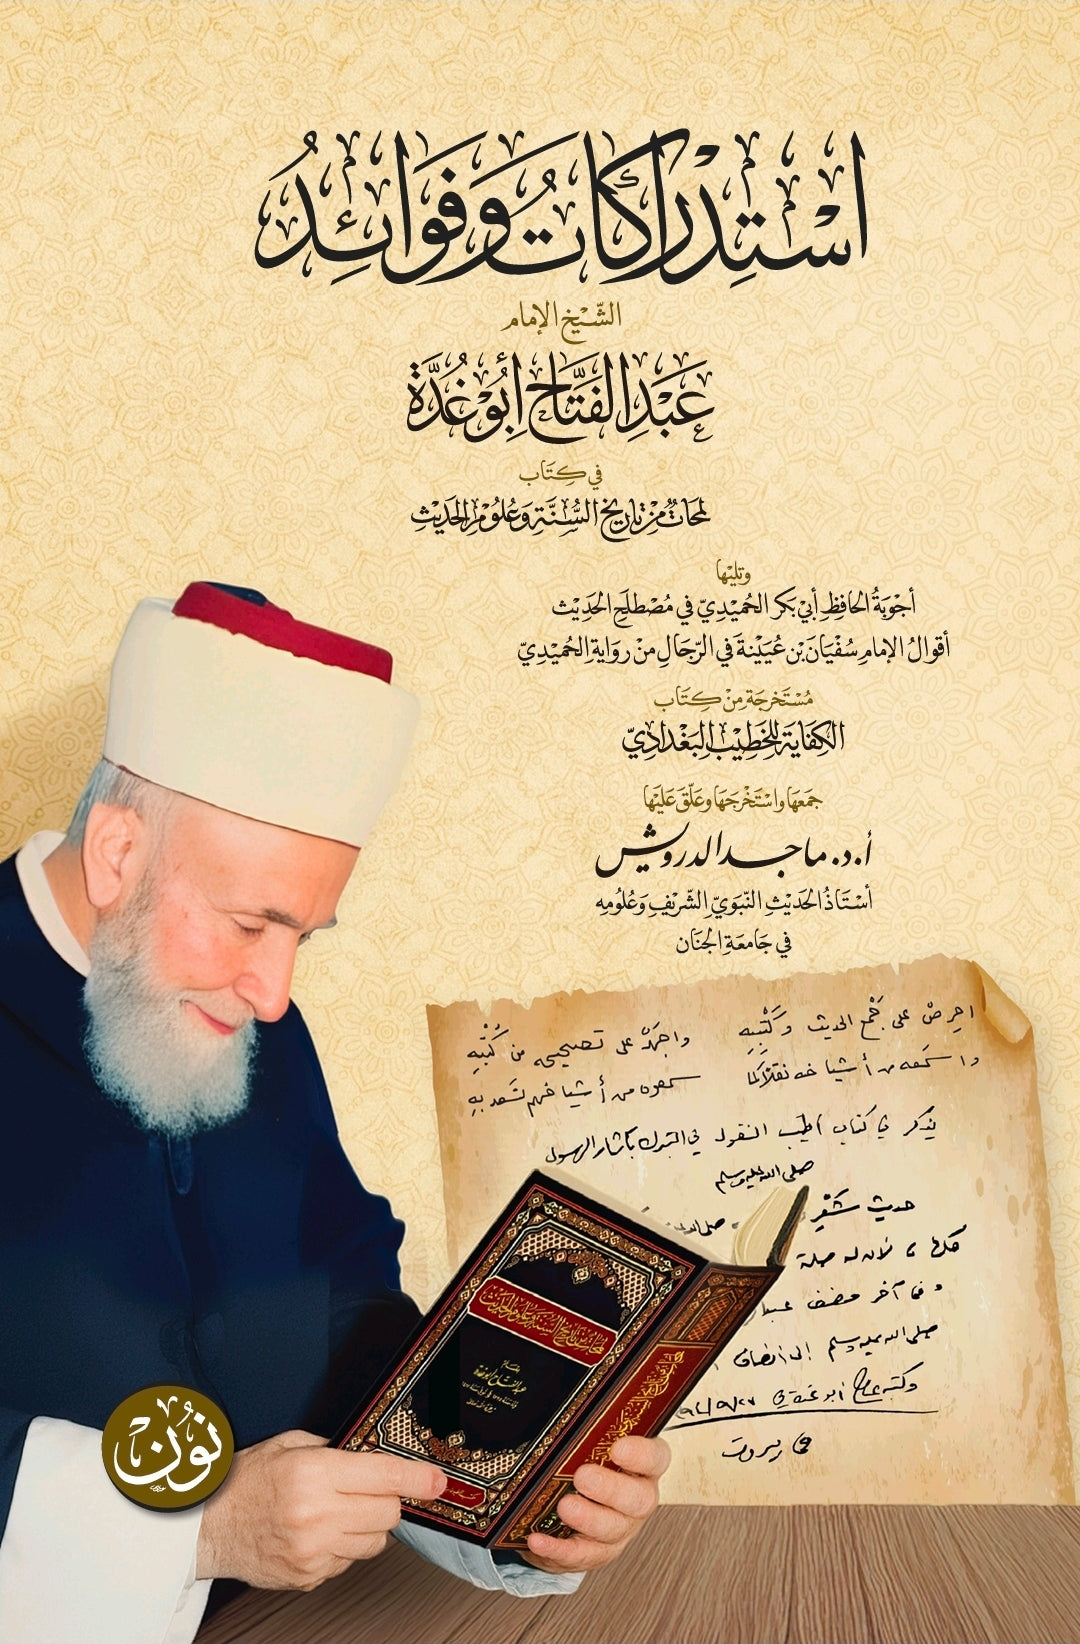 اسْتِدْرَاكَاتُ وَفَوَائِدُ
الشَّيْخِ الإِمَامِ
عَبْدِ الفَتَّاحِ أَبُو غُدَّة
فِي كِتَابِ
لَمَحَاتٌ مِنْ تَارِيخِ السُّنَّةِ وَعُلُومِ الحَدِيثِ
وتليْها
أجْوِبَةُ الحَافِظِ أَبِي بَكر الحُمَيْدِيّ فِي مُصْطَلَحِ الحَدِيْث
أقوالُ الإمامِ سُفْيَانَ بْن عُيَيْنَةَ فِي الرِّجَالِ مِنْ روايةِ الحُمَيْدِيّ
مُسْتَخرجَة مِنْ كِتَاب
الكِفَايَة لِلخَطِيْبِ البَغْدَادِيّ
جمَعَهَا واسْتَخْرَجَهَا وعَلّقَ عَلَيْها
أ.د. ماجد الدرويش
أسْتَاذُ الحَدِيْثِ النَّبَوِيّ الشّرِيْفِ وَعُلُومِه
فِي جَامعَةِ الجنَان
احرصْ على جَمْعِ الحديث وكَتْبِهِ واجهَدْ على تصحيحه من كُتْبِهِ
واسمعه من أشياخه نقلاً كما سمعوه من أشياخهم تَسعد به
يُذكر في كتاب أطيب النقول في التبرك بآثار الرسول
صلى الله عليه وسلم
حديث شَعْر
صلى الله
لأن له صلة
وفي آخر
صلى الله عليه وسلم إلى
وكتبه أبو غدة في
في بيروت
لمحات من تاريخ السنة وعلوم الحديث
بقلم
عبد الفتاح أبو غدة
نُون